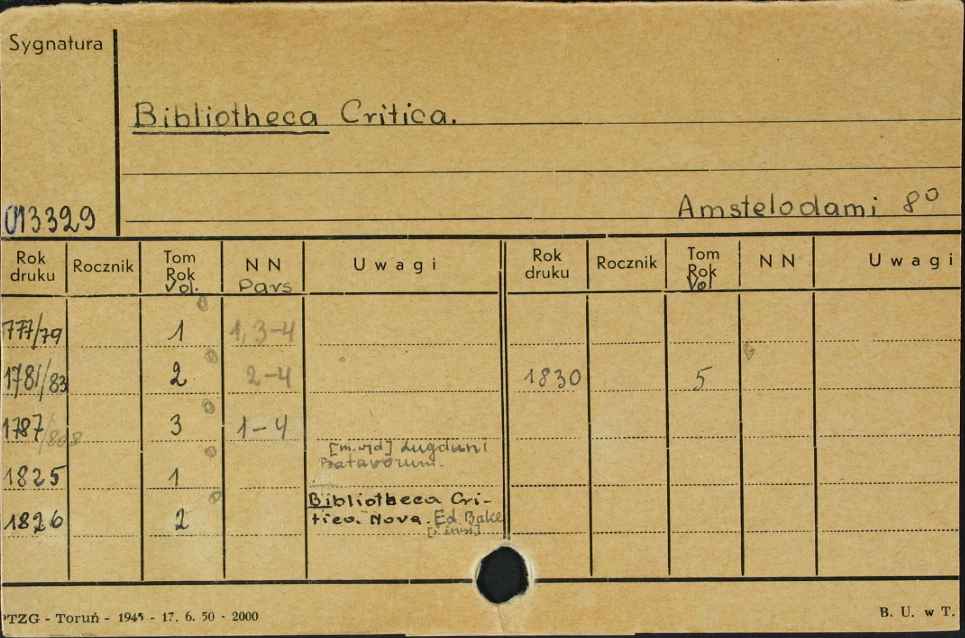 Sygnatura
Bibliotheca Critica.
013329
Amstelodami 8⁰
Rok druku Rocznik Tom Rok Vol. NN Pars Uwagi Rok druku Rocznik Tom Rok Vol NN Uwagi
777/79 1 1, 3-4
1781/83 2 2-4 1830 5
1787/808 3 1-4
[m. wyd] Lugduni
Batavorum.
1825 1
Bibliotheca Cri-
1826 2 tica. Nova. Ed. Bake
[i inni]
PTZG - Toruń - 1945 - 17. 6. 50 - 2000
B. U. w T.